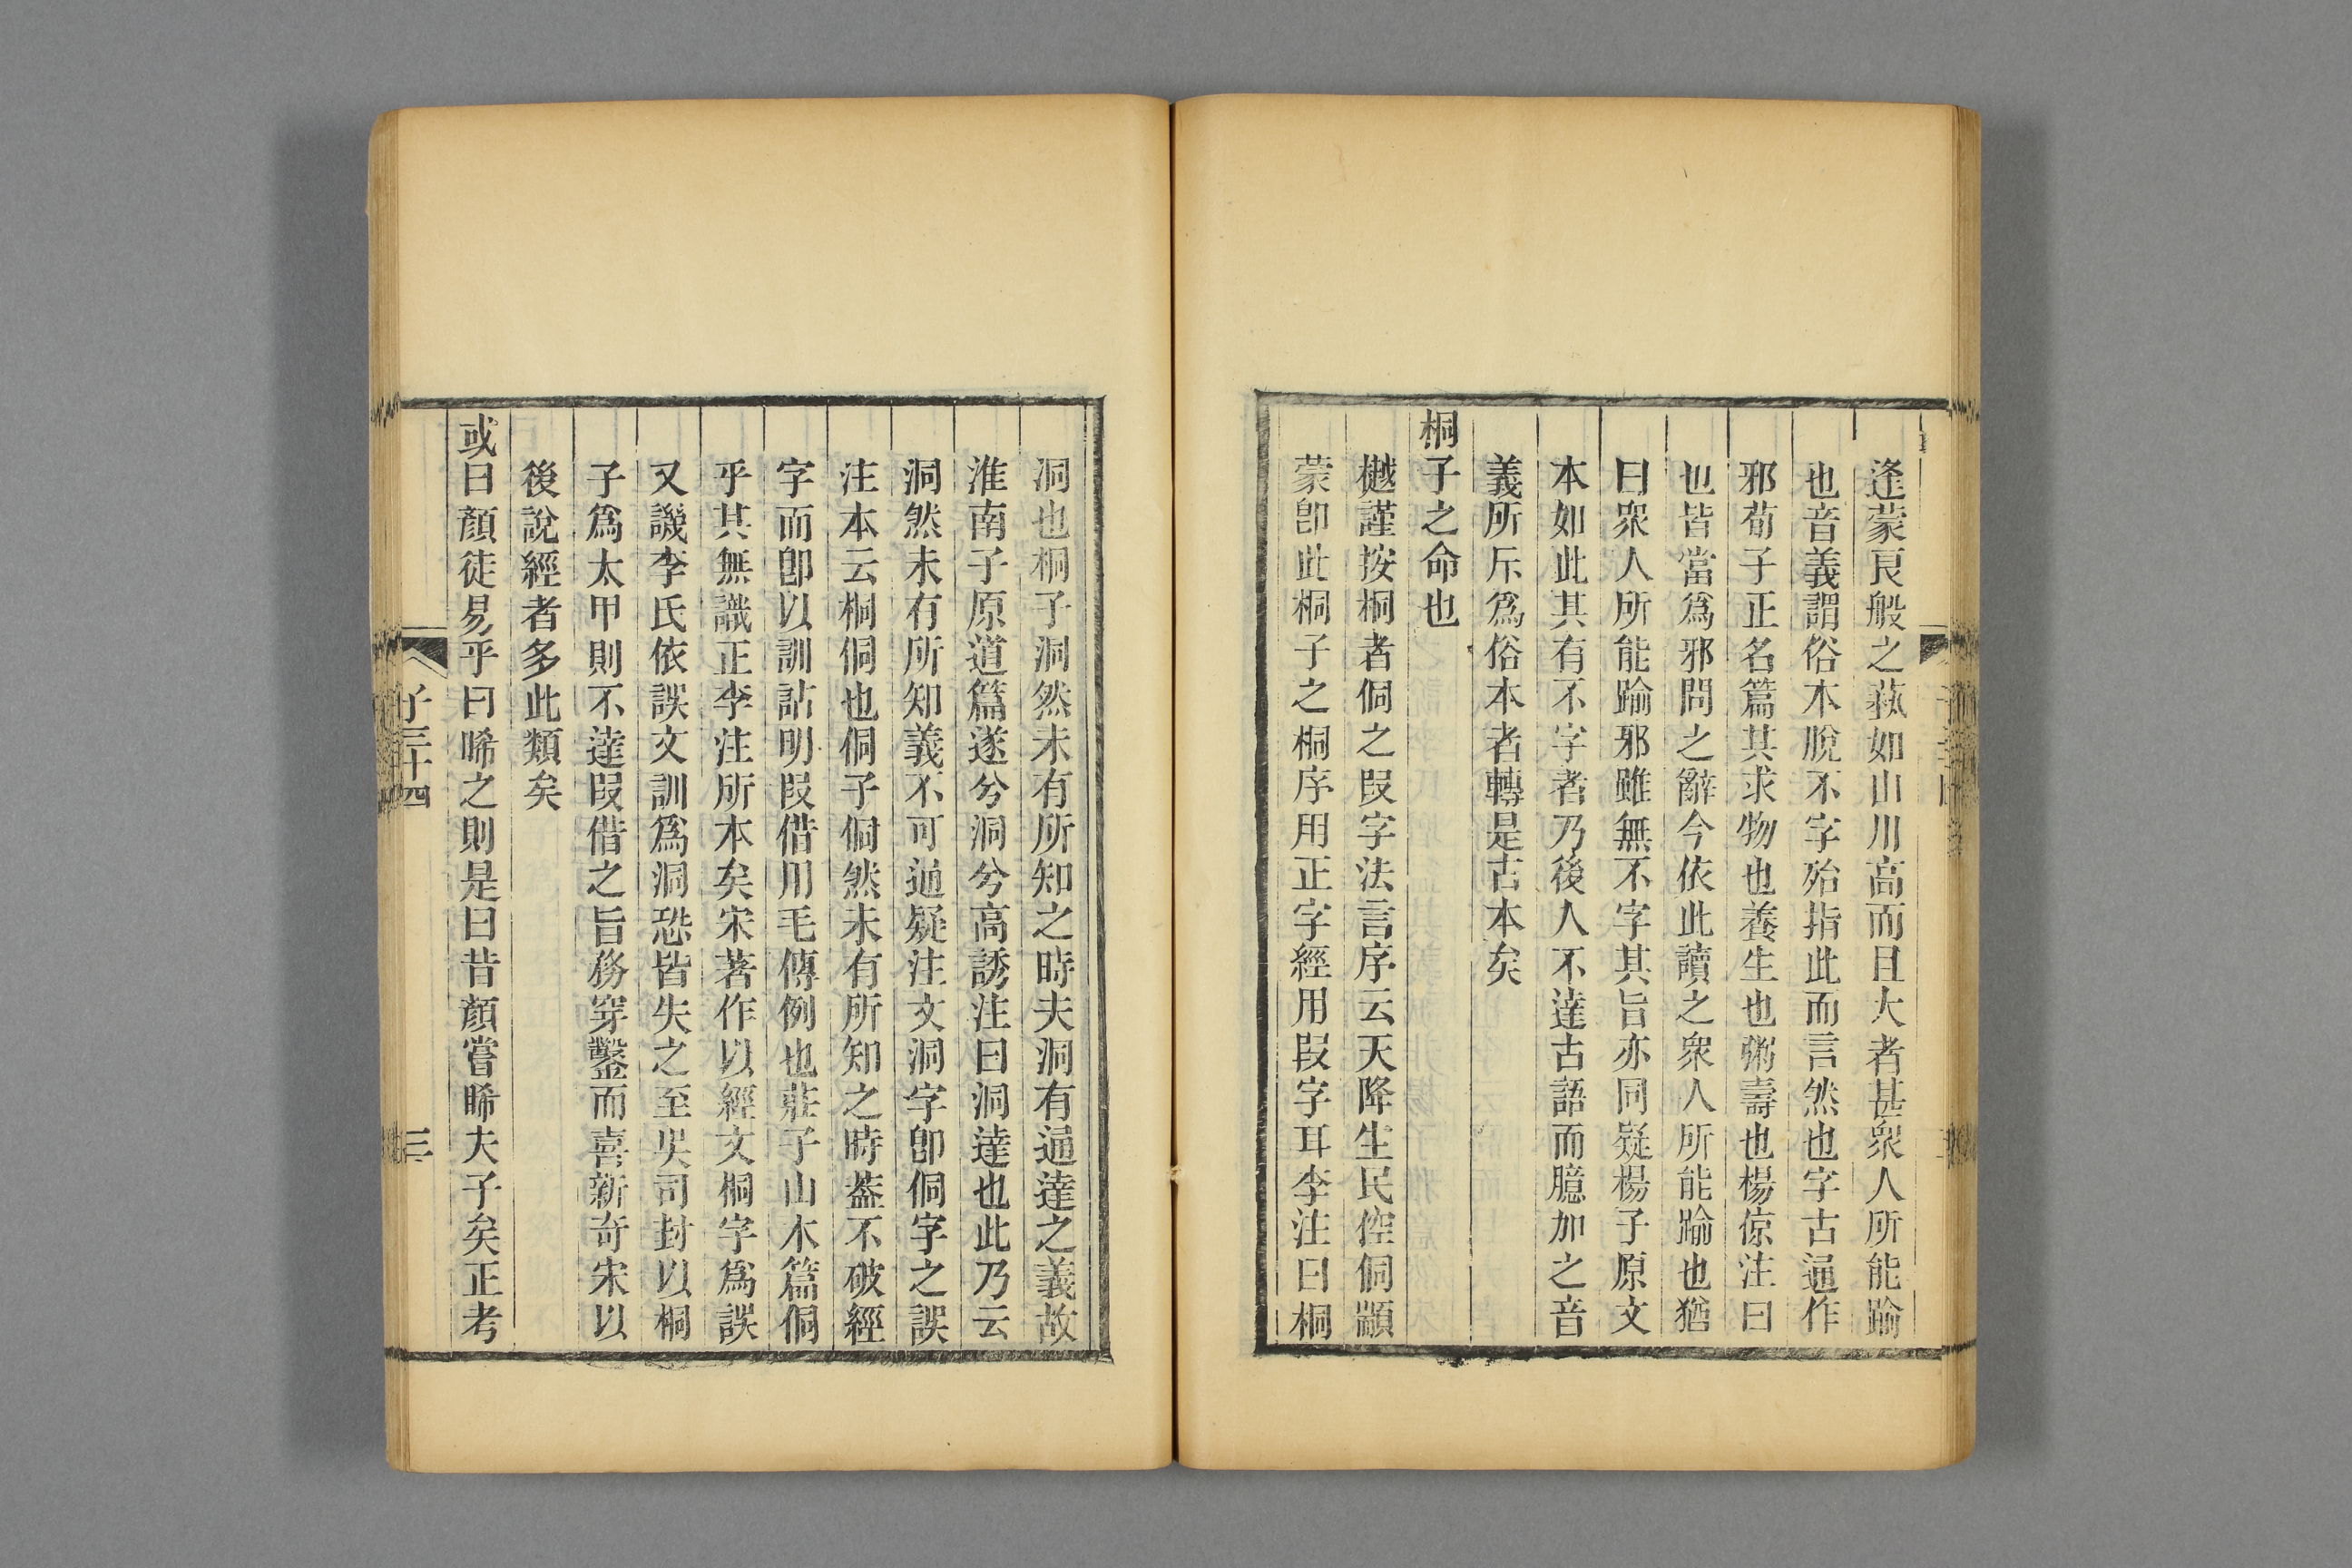 逢蒙良般之蓺如山川高而且大者甚衆人所能踰
也音義謂俗本脫不字殆指此而言然也字古通作
邪荀子正名篇其求物也養生也粥壽也楊倞注曰
也皆當爲邪問之辭今依此讀之衆人所能踰也猶
曰衆人所能踰邪雖無不字其旨亦同疑楊子原文
本如此其有不字者乃後人不達古語而臆加之音
義所斥爲俗本者轉是古本矣
桐子之命也
樾謹按桐者侗之叚字法言序云天降生民倥侗顓
蒙卽此桐子之桐序用正字經用叚字耳李注曰桐
洞也桐子洞然未有所知之時夫洞有通達之義故
淮南子原道篇遂兮洞兮高誘注曰洞達也此乃云
洞然未有所知義不可通疑注文洞字卽侗字之誤
注本云桐侗也侗子侗然未有所知之時葢不破經
字而卽以訓詁明叚借用毛傳例也莊子山木篇侗
乎其無識正李注所本矣宋著作以經文桐字爲誤
又譏李氏依誤文訓爲洞恐皆失之至吳司封以桐
子爲太甲則不達叚借之旨務穿鑿而喜新奇宋以
後說經者多此類矣
或曰顏徒易乎曰睎之則是曰昔顏嘗睎夫子矣正考
子三十四
三